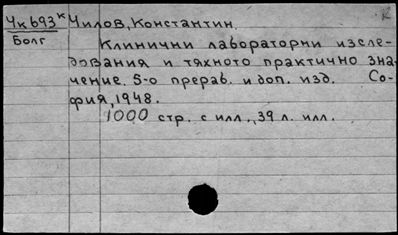 Чк693к Чилов, Константин.
Болг
Клинични лабораторни изсле-
дования и тяхното практично зна-
чение. 5-о прераб. и доп. изд. Со-
фия, 1948.
1000 стр. с илл., 39 л. илл.